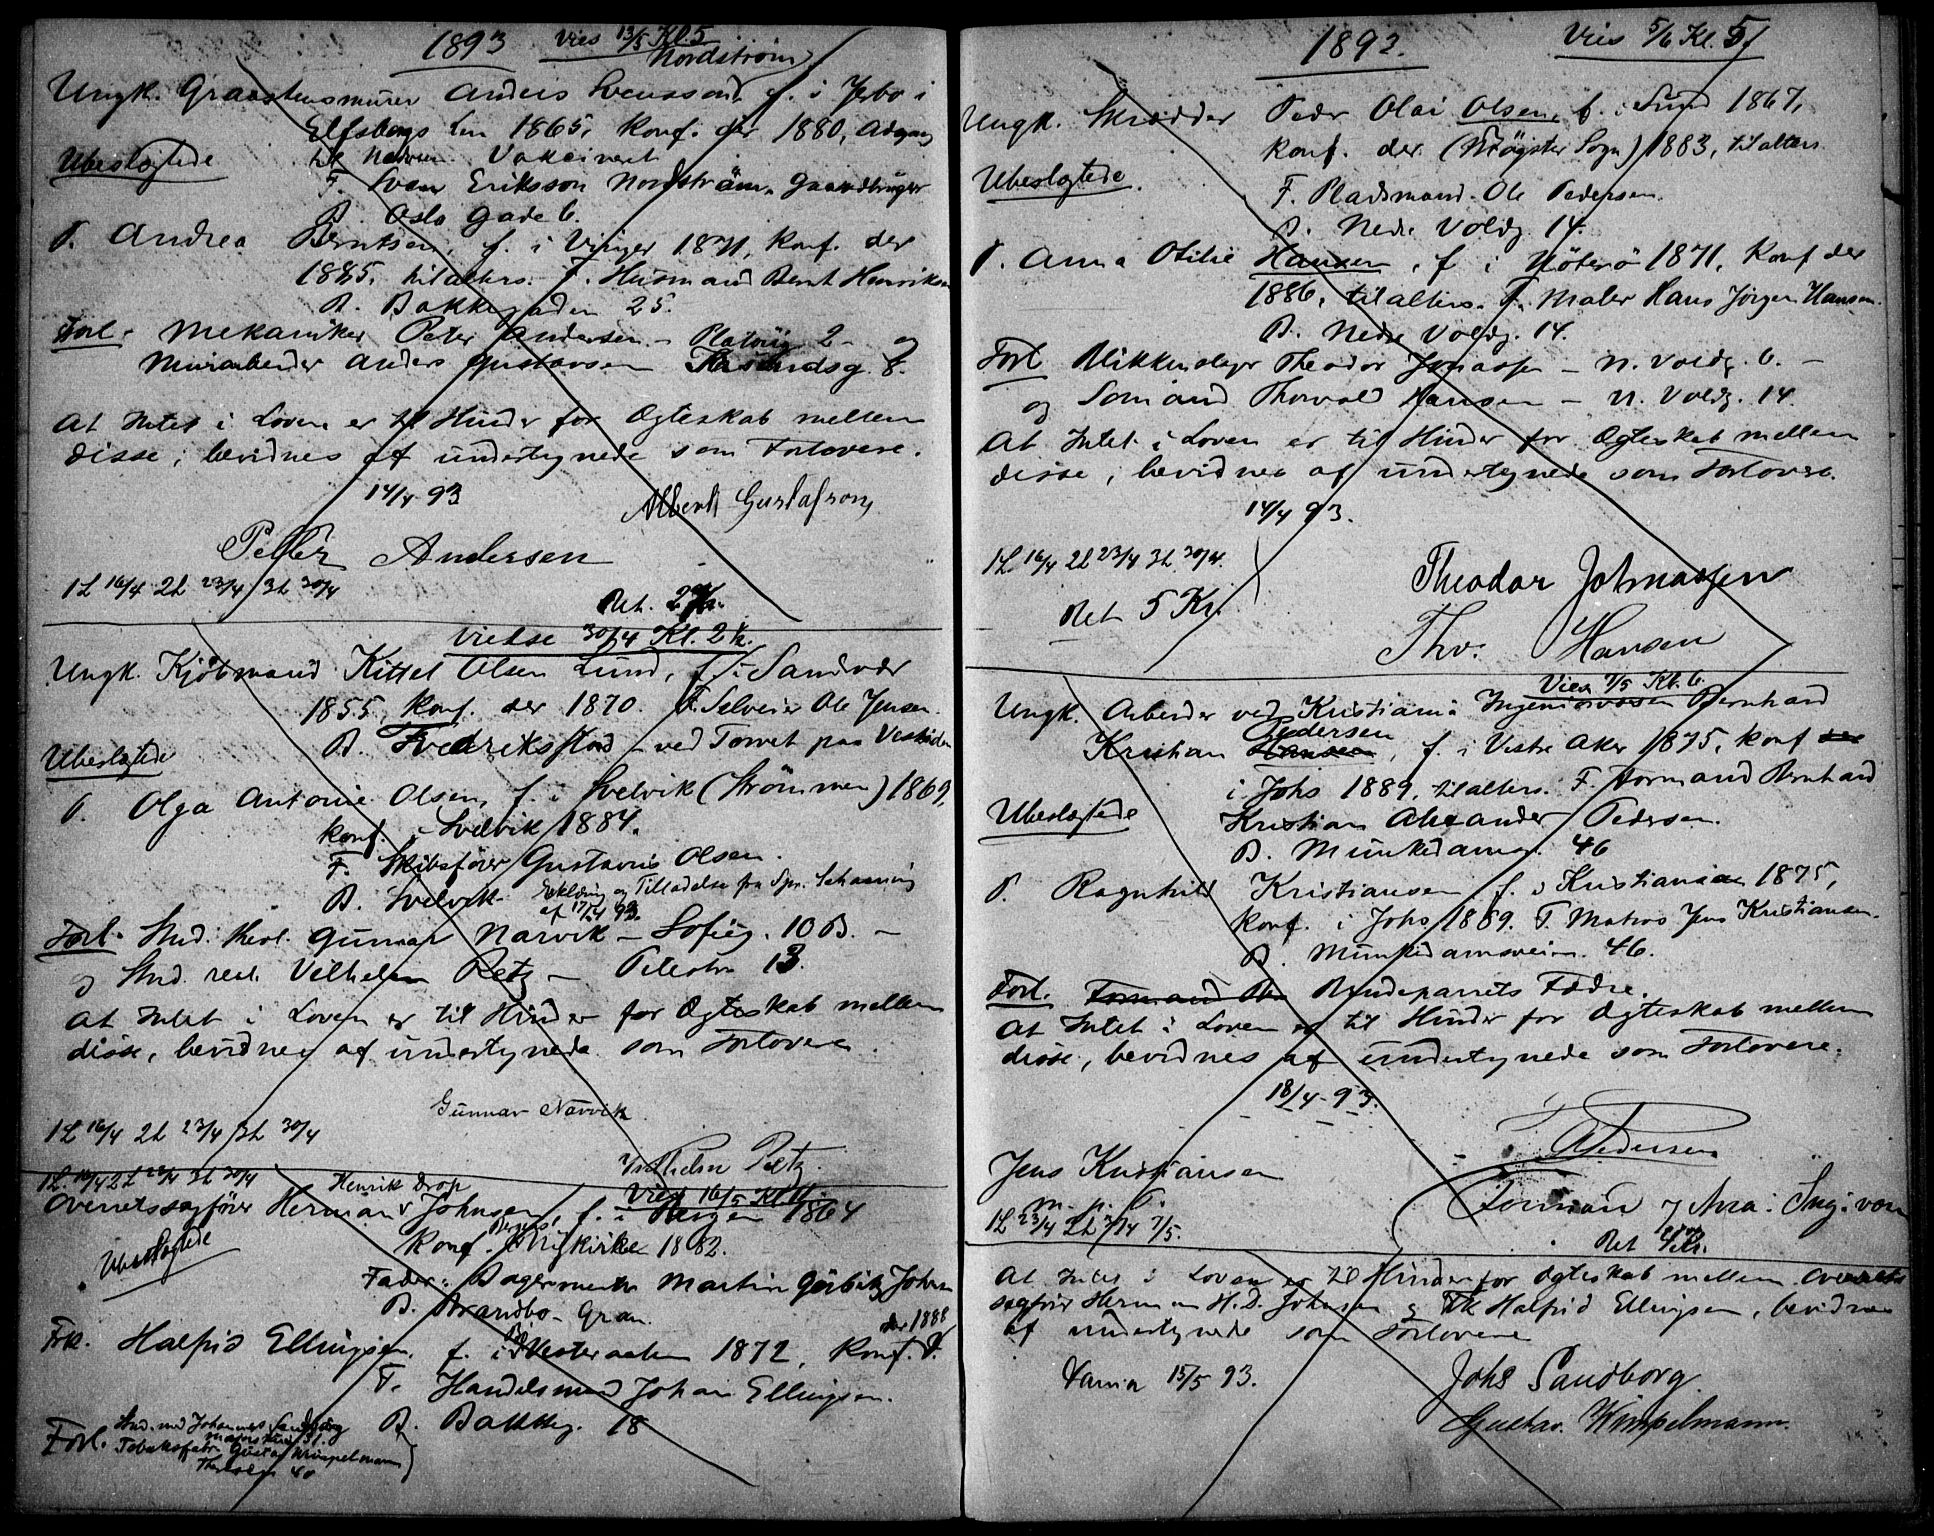 1893 Vies 13/5 Kl. 5
Nordström
Ungk. Graastensmurer Anders Svensson, f. i Jerbo i
Elfsborgs Len 1865, konf. der 1880, Adgang
Ubeslægtede til Nadveren. Vakcineret
F. Sven Eriksson Nordström, Gaardbruger
B. Oslo Gade 6.
P. Andrea Berntsen, f. i Vinger 1871, konf. der
1885, til alters. F. Husmand Bernt Henriksen
B. Bakkegaden 25.
Forl. Mekaniker Peter Andersen - Platöug. 2 - og
Murarbeider Anders Gustavsen 8.
At Intet i Loven er til Hinder for Ægteskab mellem
disse, bevidnes af undertegnede som Forlovere.
14/4 93 Albert Gustafson
Petter Andersen
1 L 16/4 2 L 23/4 3 L 30/4
Bet. 2 Kr.
Viedse 30/4 Kl. 2 1/2.
Ungk. Kjöbmand Kittel Olsen Lund, f. i Sandsvær
1855, konf. der 1870. F. Selveier Ole Jensen
B. Fredriksstad - ved Torvet paa Vestsiden
Ubeslægtede
P. Olga Antonie Olsen, f. i Svelvik (Strömmen) 1869,
konf. i Svelvik 1884.
F. Skibsförer Gustavus Olsen.
B. Svelvik. Erklæring og Tilladelse fra Spr. Schanning
af 17/4 93.
Forl. Stud. theol. Gunnar Narvik - Sofieg. 10 B. -
og Stud. real. Vilhelm Petz - Pilestr. 13.
At Intet i Loven er til Hinder for Ægteskab mellem
disse, bevidnes af undertegnede som Forlovere.
Gunnar Narvik
1 L 16/4 2 L 23/4 3 L 30/4
Vilhelm Petz.
1 L. 16/4 2 L 23/4 3 L 30/4 Henrik Drop Vies 16/5 Kl. 11.
Overretssagförer Herman Johnsen, f. i Bergen 1864
Ubeslægtede konf. Bergens Nykirke 1882.
Fader: Bagermester Martin Görbitz Johnsen
B. Brandbo - Gran.
der 1888
Frk. Halfrid Ellingsen, f. i Vesteraalen 1872, konf. P.
F. Handelsmand Johan Ellingsen.
B. Bakkeg. 18
Forl. Stud. med Johannes Sandborg
31.
Tobaksfabr. Gustav Wimpelmann
Thereses. 40
1893. Vies 5/6 Kl. 5.
Ungk. Skrædder Peder Olai Olsen, f. i Sund 1867,
konf. der. ( Sogn) 1883, til alters
Ubeslægtede. F. Pladsmand Ole Pedersen.
B. Nedr. Voldg. 14.
P. Anna Otilie Hansen, f. i Nöterö 1871, konf der
1886, til alters. F. Maler Hans Jörgen Hansen.
B. Nedre Voldg. 14.
Forl. Blikkenslager Theodor Jonassen - N. Voldg. 6. -
og Sömand Thorvald Hansen - N. Voldg. 14
At Intet i Loven er til Hinder for Ægteskab mellem
disse, bevidnes af undertegnede som Forlovere.
14/4 93.
1 L 16/4 2 L 23/4 3 L 30/4.
Theodor Johnassen
Bet 5 Kr.
Thv. Hansen
Vies 7/5 Kl. 6.
Ungk. Arbeider ved Kristiania Ingeniörvæsen Bernhard
Pedersen
Kristian Hansen, f. i Vestre Aker 1875, konf der
i Johs 1889, til alters. F. Formand Bernhard
Ubeslægtede Kristian Alexander Pedersen.
B. Munkedamsv. 46
P. Ragnhild Kristiansen f. i Kristiania 1875,
konf. i Johs 1889. F. Matros Jens Kristiansen.
B. Munkedamsveien. 46.
Forl. Formand Be Brudeparrets Fædre.
At Intet i Loven er til Hinder for Ægteskab mellem
disse, bevidnes af undertegnede som Forlovere.
18/4 - 93.
Pedersen
Jens Kristiansen
m. p. P.
Forman v. Kra: Ing: væs
1 L 23/4 2 L 30/4 7/5.
Bet 4 Kr.
At Intet i Loven er til Hinder for Ægteskab mellem Overrets
sagförer Herman H. D. Johnsen og Frk Halfrid Ellingsen, bevidnes
af undertegnede som Forlovere
Xania 15/5 93. Johs Sandborg.
Gustav. Wimpelmann.